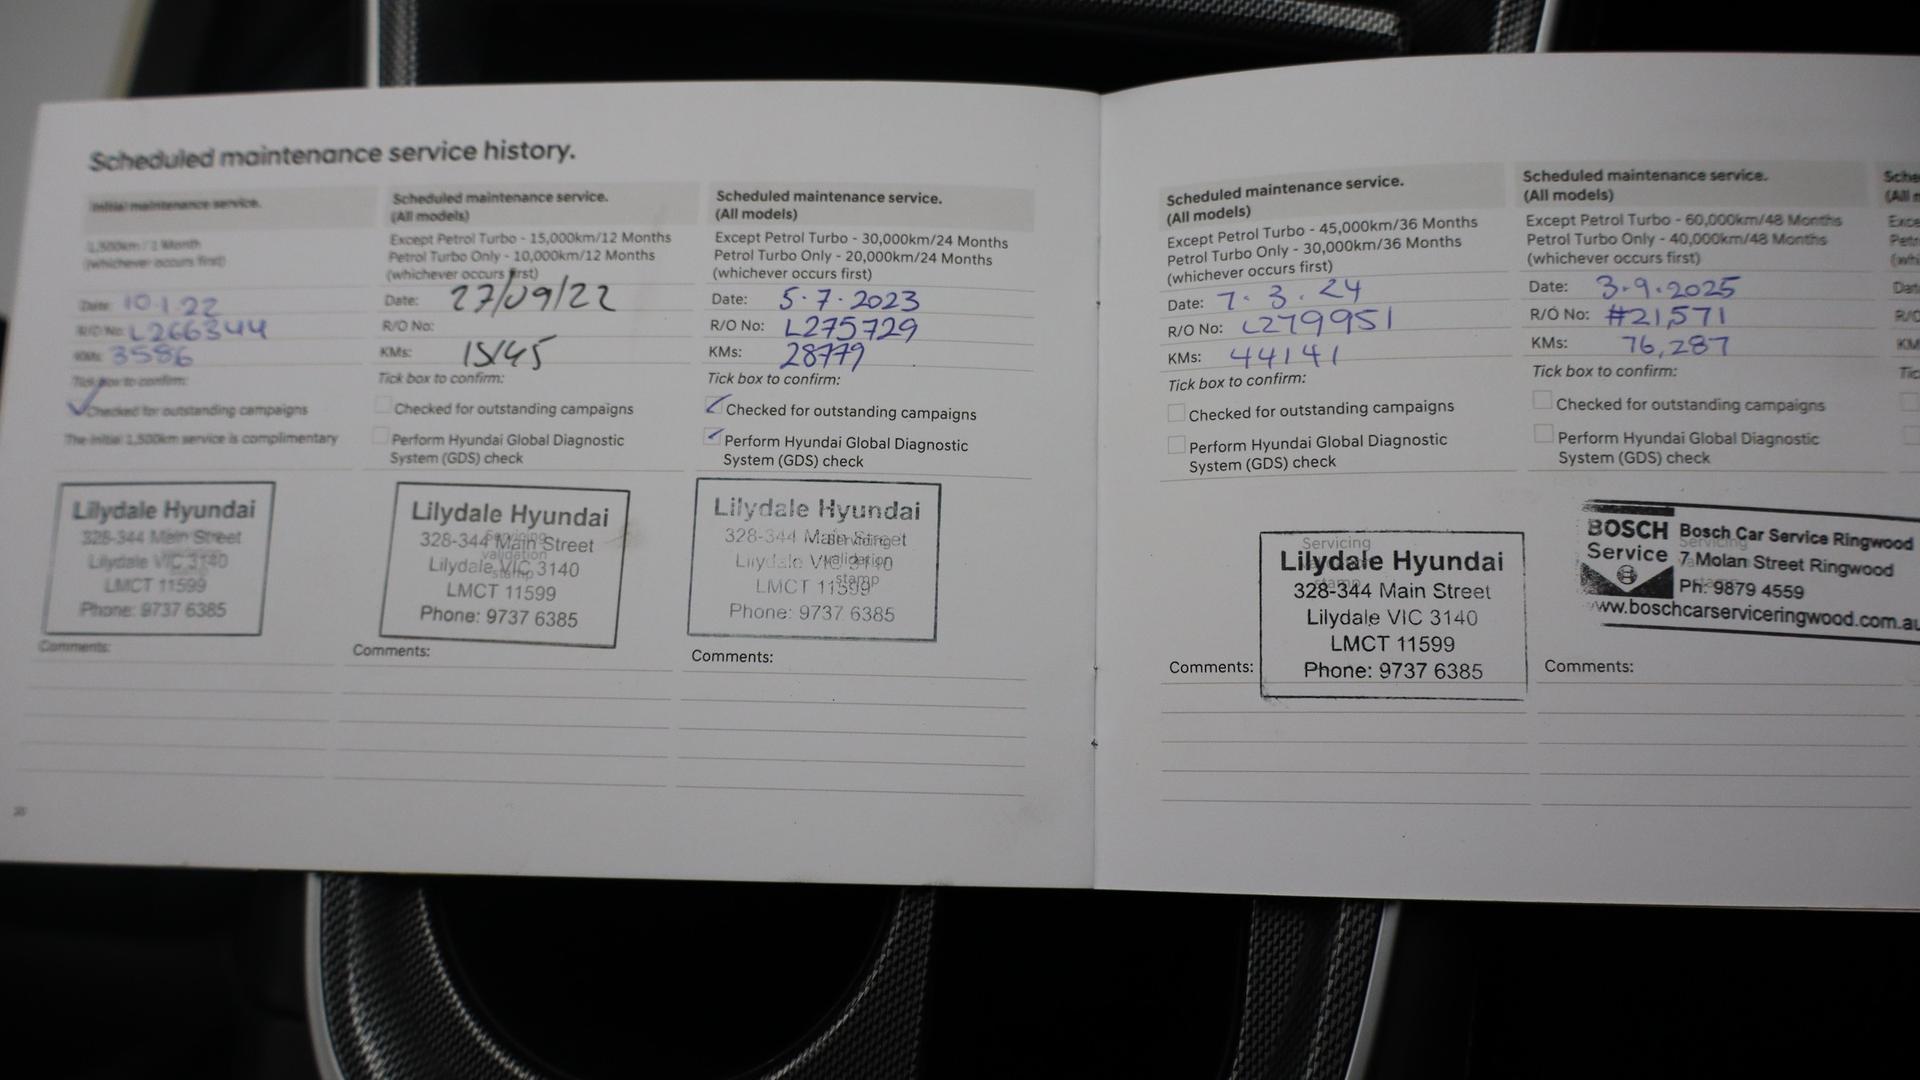 Scheduled maintenance service history.
Initial maintenance service.
1,500km / 1 Month
(whichever occurs first)
Date: 10.1.22
R/O No: L266344
KMs: 3586
Tick box to confirm:
Checked for outstanding campaigns
The initial 1,500km service is complimentary
Lilydale Hyundai
328-344 Main Street
Lilydale VIC 3140
LMCT 11599
Phone: 9737 6385
Comments:
Scheduled maintenance service.
(All models)
Except Petrol Turbo - 15,000km/12 Months
Petrol Turbo Only - 10,000km/12 Months
(whichever occurs first)
Date: 27/09/22
R/O No:
KMs: 15145
Tick box to confirm:
Checked for outstanding campaigns
Perform Hyundai Global Diagnostic
System (GDS) check
Servicing
validation
stamp
Lilydale Hyundai
328-344 Main Street
Lilydale VIC 3140
LMCT 11599
Phone: 9737 6385
Comments:
Scheduled maintenance service.
(All models)
Except Petrol Turbo - 30,000km/24 Months
Petrol Turbo Only - 20,000km/24 Months
(whichever occurs first)
Date: 5.7.2023
R/O No: L275729
KMs: 28779
Tick box to confirm:
Checked for outstanding campaigns
Perform Hyundai Global Diagnostic
System (GDS) check
Servicing
validation
stamp
Lilydale Hyundai
328-344 Main Street
Lilydale VIC 3140
LMCT 11599
Phone: 9737 6385
Comments:
Scheduled maintenance service.
(All models)
Except Petrol Turbo - 45,000km/36 Months
Petrol Turbo Only - 30,000km/36 Months
(whichever occurs first)
Date: 7.3.24
R/O No: L279951
KMs: 44141
Tick box to confirm:
Checked for outstanding campaigns
Perform Hyundai Global Diagnostic
System (GDS) check
Servicing
stamp
Lilydale Hyundai
328-344 Main Street
Lilydale VIC 3140
LMCT 11599
Phone: 9737 6385
Comments:
Scheduled maintenance service.
(All models)
Except Petrol Turbo - 60,000km/48 Months
Petrol Turbo Only - 40,000km/48 Months
(whichever occurs first)
Date: 3.9.2025
R/O No: #21,571
KMs: 76,287
Tick box to confirm:
Checked for outstanding campaigns
Perform Hyundai Global Diagnostic
System (GDS) check
Servicing
BOSCH
Service
Bosch Car Service Ringwood
7 Molan Street Ringwood
Ph: 9879 4559
www.boschcarserviceringwood.com.au
Comments: